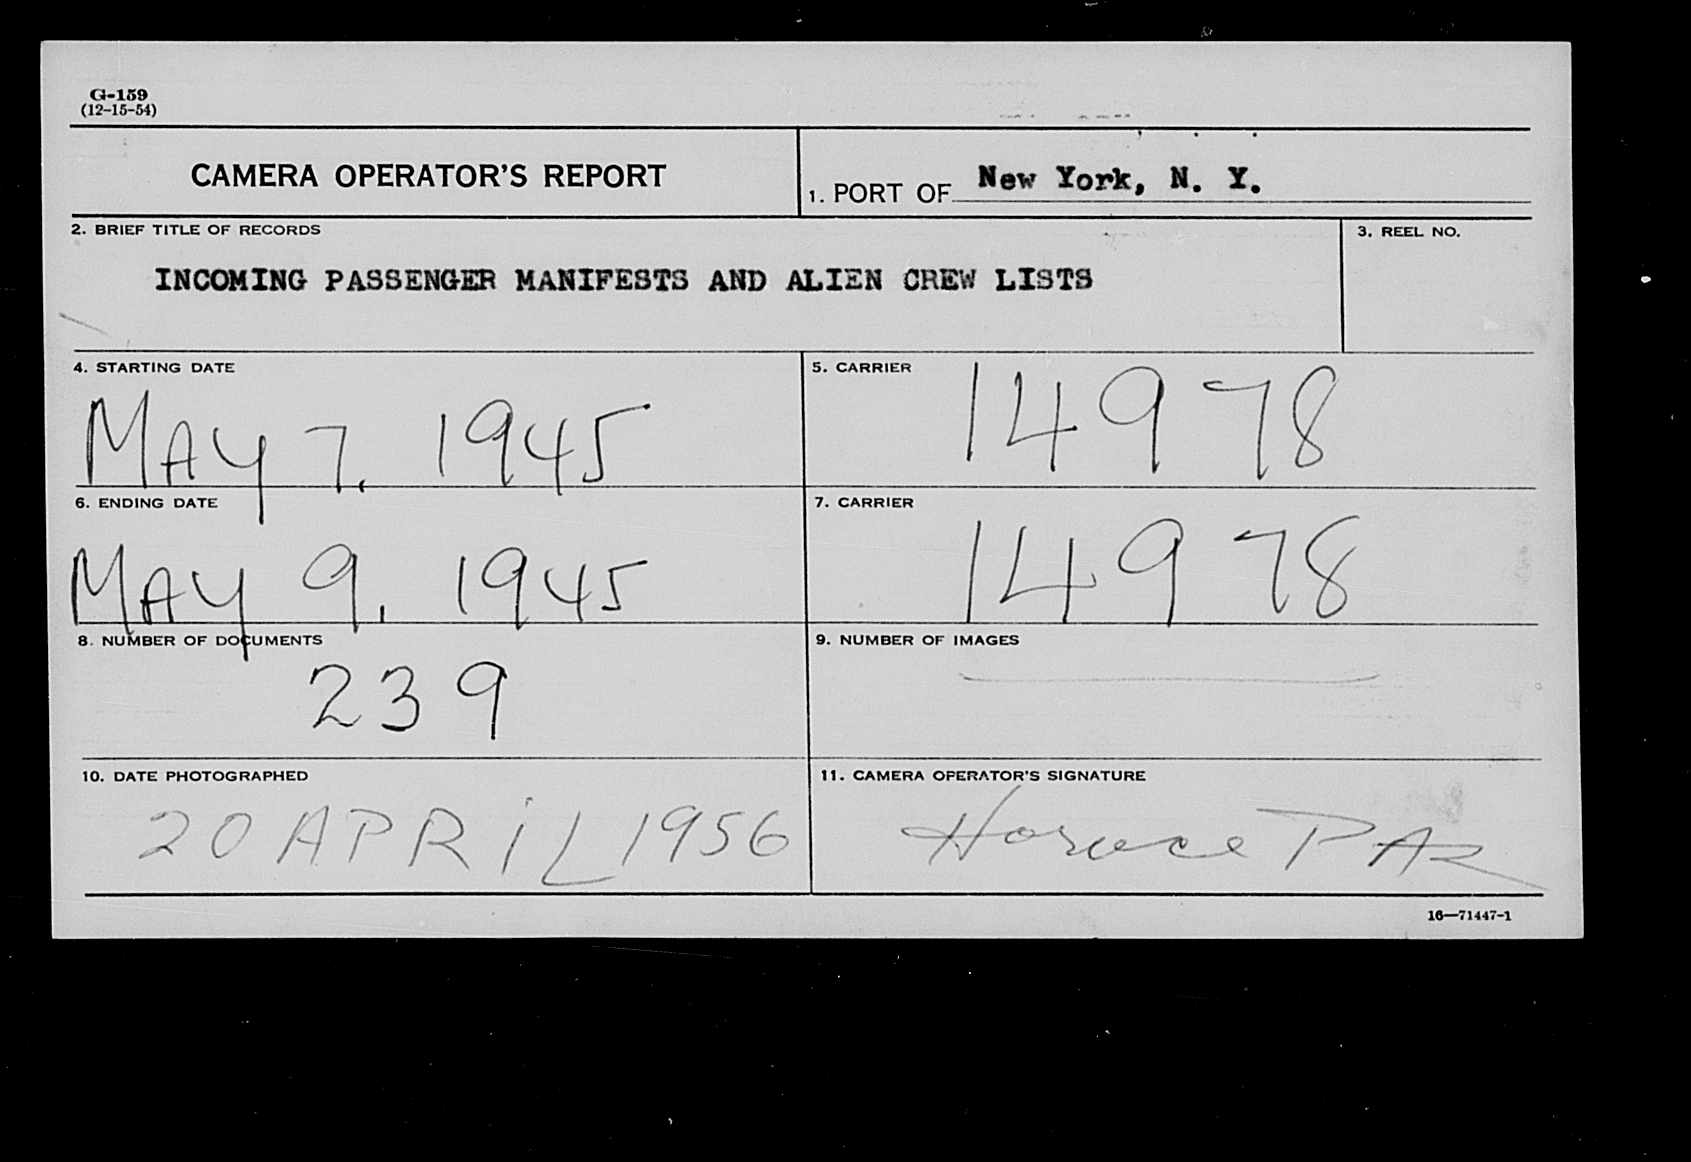 G-159
(12-15-54)
CAMERA OPERATOR'S REPORT
1. PORT OF New York, N. Y.
2. BRIEF TITLE OF RECORDS
3. REEL NO.
INCOMING PASSENGER MANIFESTS AND ALIEN CREW LISTS
4. STARTING DATE
5. CARRIER
MAY 7, 1945
14978
6. ENDING DATE
7. CARRIER
MAY 9, 1945
14978
8. NUMBER OF DOCUMENTS
9. NUMBER OF IMAGES
239
10. DATE PHOTOGRAPHED
11. CAMERA OPERATOR'S SIGNATURE
20 APRiL 1956
Horace
16—71447-1